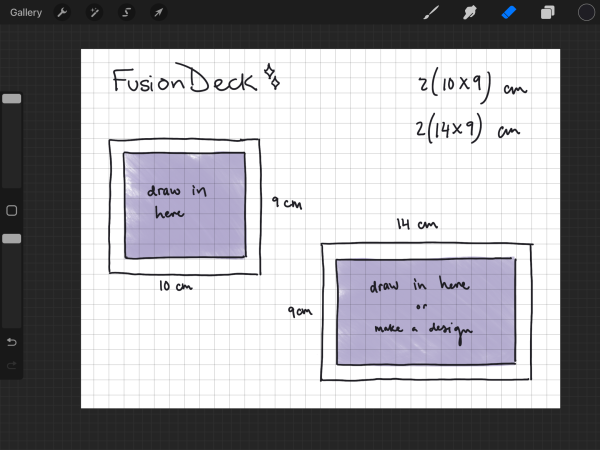 Gallery
FusionDeck
2(10x9) cm
2(14x9) cm
draw in
here
9 cm
10 cm
14 cm
9cm
draw in here
or
make a design